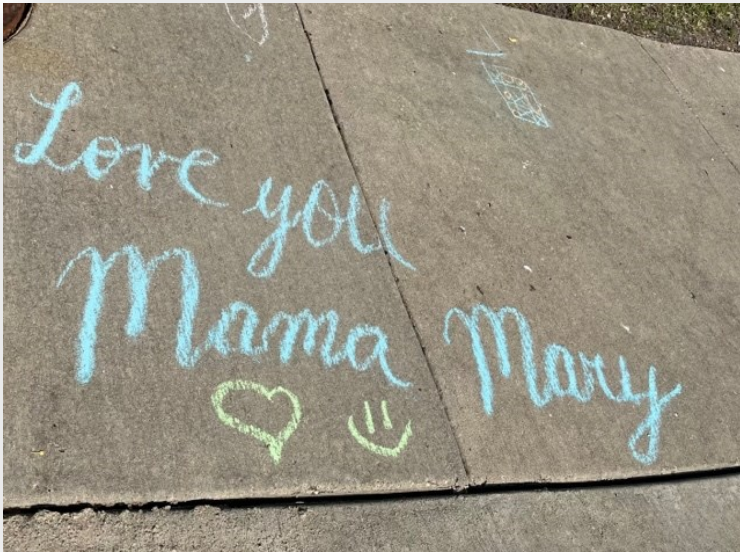 Love you
Mama Mary